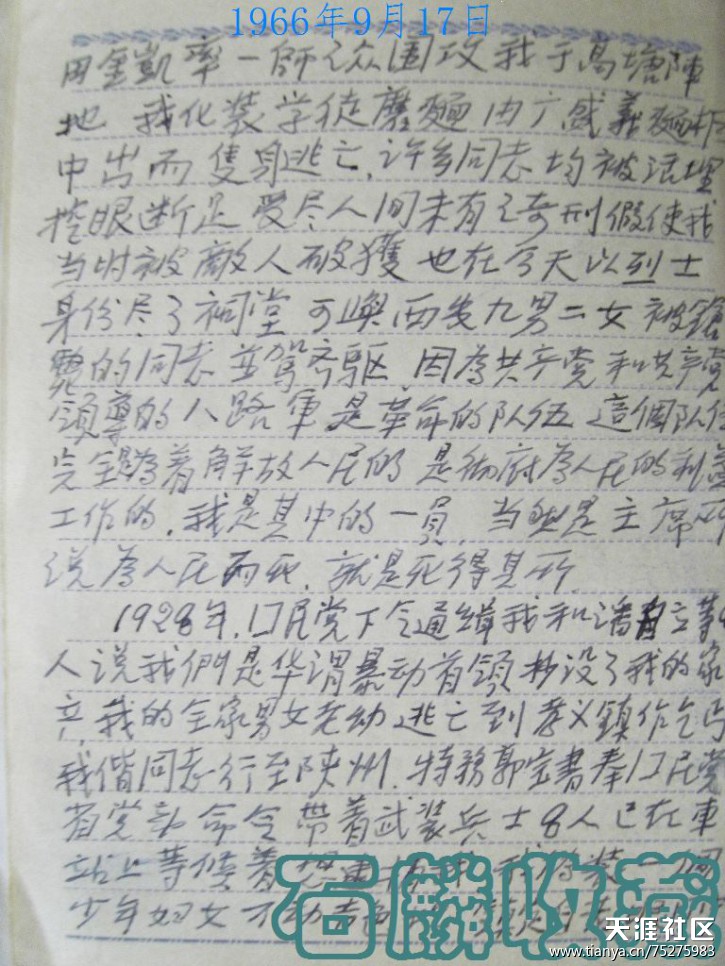 1966年9月17日
田金凱率一師之众围攻我于高塘陣
地 我化装学徒磨麵由广盛義麵柜
中出而隻身逃亡,许多同志均被活埋
挖眼断足 受尽人间未有之奇刑假使我
当时被敵人破獲也在今天以烈士
身份尽了祠堂 可與西安九男二女被鎗
斃的同志並駕齐驱 因為共产党和共产党
領導的八路軍是革命的队伍 這個队伍
完全為着解放人民的 是彻底為人民的利益
工作的,我是其中的一員,当然是主席所
说為人民而死,就是死得其所,
1928年,囗民党下令通緝我和潘自立等
人说我們是华渭暴动首領抄没了我的家
产,我的全家男女老幼逃亡到孝义鎮作乞丐
我偕同志行至陕州,特務郭宝書奉囗民党
省党部命令带着武装兵士8人已在車
站上等候着
少年妇女不动声色
石麟收藏
天涯社区
www.tianya.cn/75275983